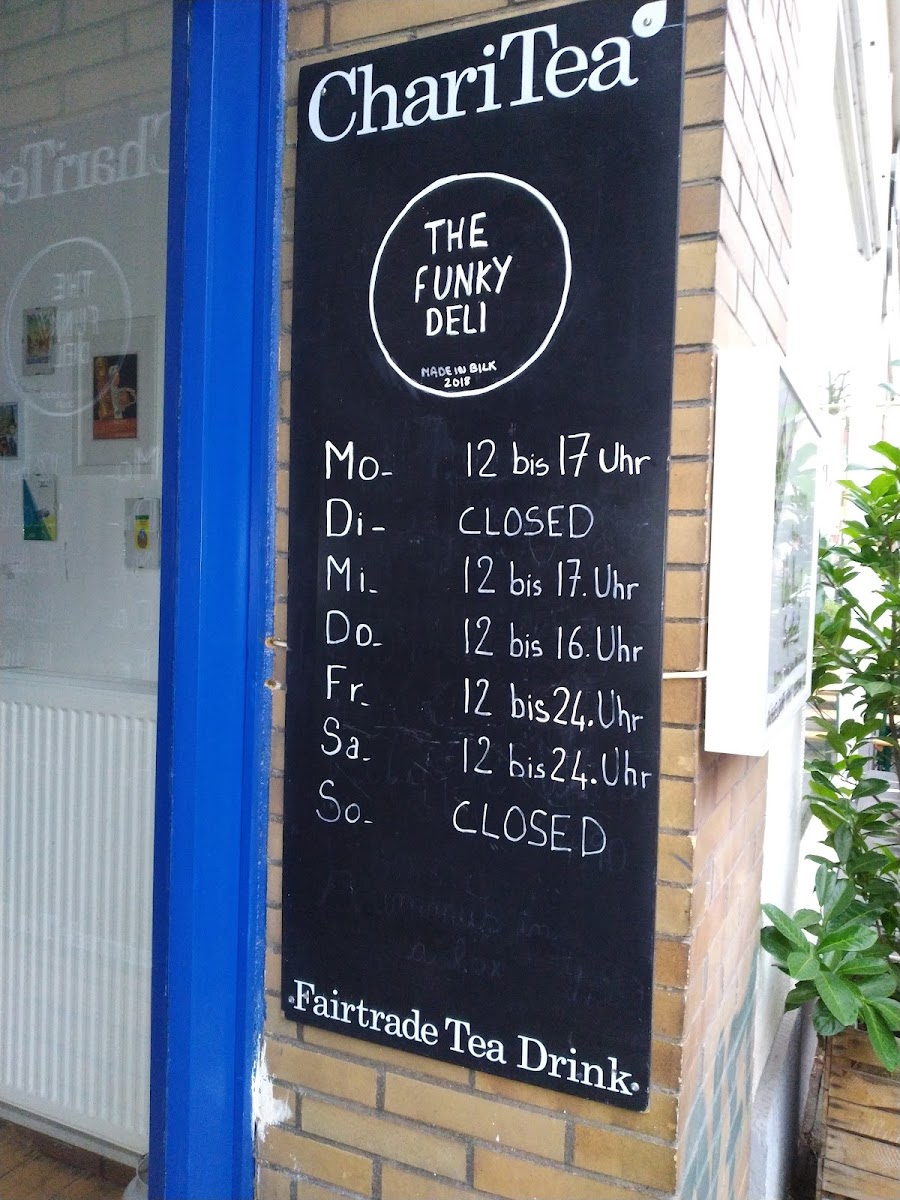 ChariTea
THE
FUNKY
DELI
MADE IN BILK
2018
Mo- 12 bis 17 Uhr
Di- CLOSED
Mi- 12 bis 17. Uhr
Do- 12 bis 16. Uhr
Fr- 12 bis 24. Uhr
Sa- 12 bis 24. Uhr
So- CLOSED
Fairtrade Tea Drink